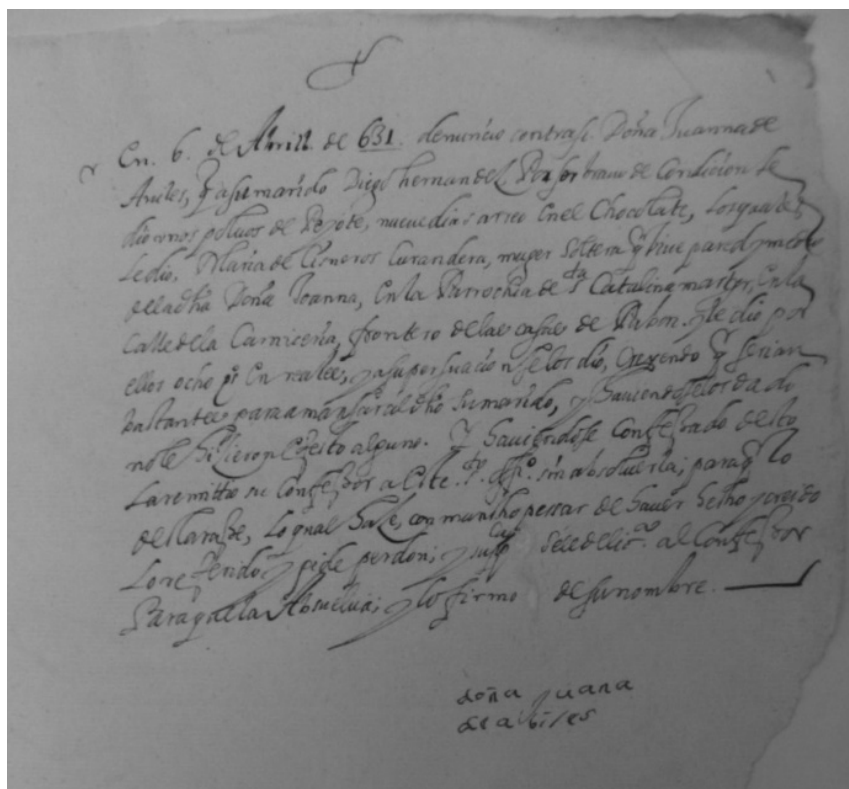 En. 6. de Abrill. de 631. denuncio contrasi. Doña Juanna de
Auiles, q̄ a su marido Diego hernandez Por ser brauo de Condicion le
dio vnos poluos de Peyote, nueue dias arreo En el Chocolate, los quales
le dio, Maria de Cisneros Curandera, muger soltera q̄ biue pared y medio
de la dha Doña Joanna, En la Parrochia de S.ta Catalina martyr, En la
Calle de la Carniceria, frontero de las casas de Pabon. y le dio por
ellos ocho ps̄ En reales, y a su persuacion se los dio, Creyendo q̄ serian
bastantes para amansar al dho su marido, y hauiendoselos dado
no le hisieron efecto alguno. Y hauiendose Confessado desto
La remitio su Confessor a este S.to Off.o sin absoluerla; paraq̄ lo
declarase, Lo qual haze, con muncho pessar de hauer hecho y creido
Lo referido; y pide perdon; y sup.ca se le de lic.a al Confessor
Para q̄ la Absuelua; y lo firmo de su nombre.
doña juana
de abiles